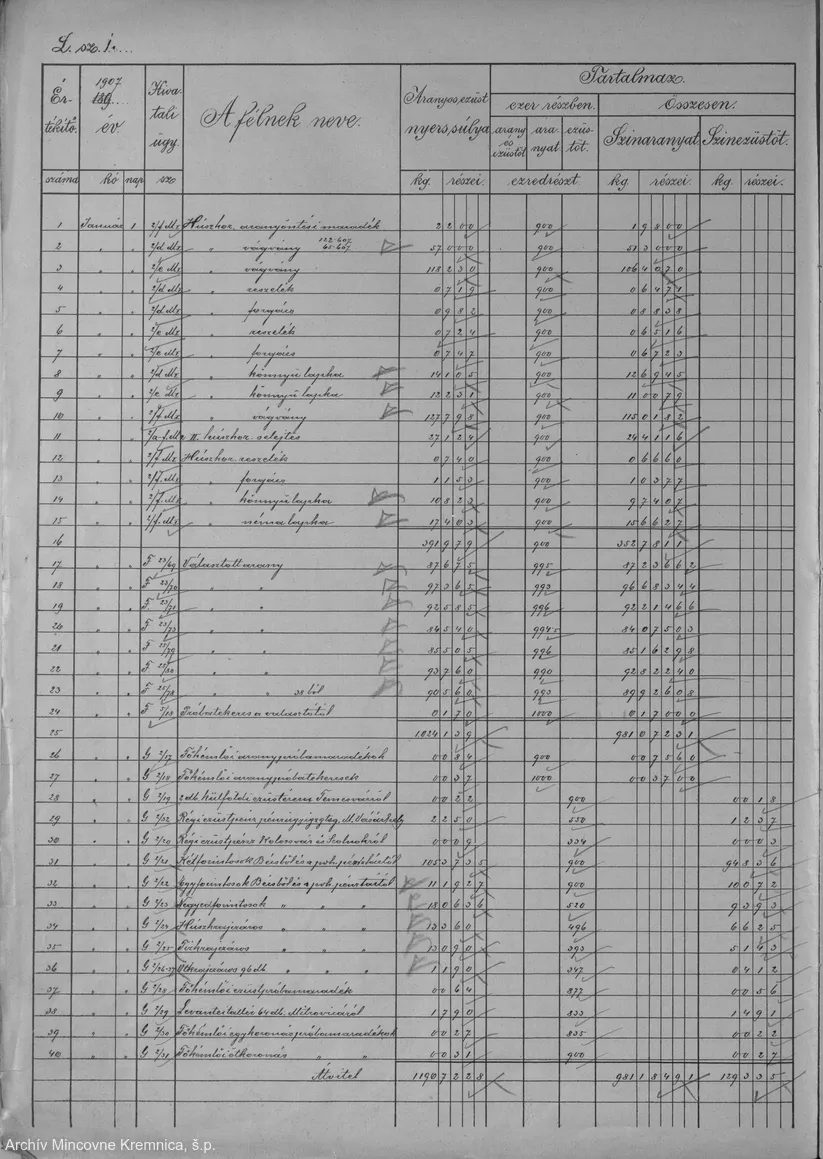 L. sz. 1.
Értékítő. száma
1907 év. hó nap
Hivatali ügy. sz
A félnek neve.
Aranyos, ezüst nyers, súlya kg. részei.
Tartalmaz.
ezer részben. Összesen.
arany és ezüstöt aranyat ezüstöt. ezredrészt.
Színaranyat kg részei. Színezüstöt. kg részei.
1 Január 1 2/f Mz Húszkor. aranyöntési maradék 2200 900 19800
2 " " 2/d Mz " vágvány 57000 900 513000
3 " " 2/e Mz " vágvány 118230 900 1064070
4 " " 2/d Mz " reszelék 0719 900 06471
5 " " 2/d Mz " forgács 0982 900 08838
6 " " 2/e Mz " reszelék 0724 900 06516
7 " " 2/e Mz " forgács 0747 900 06723
8 " " 2/d Mz " könnyü lapka 14105 900 126945
9 " " 2/e Mz " könnyü lapka 12231 900 110079
10 " " 2/f Mz " vágvány 127798 900 1150182
11 " " Mz III. húszkor. selejtés 27124 900 244116
12 " " 2/f Mz Húszkor. reszelék 0740 900 06660
13 " " 2/f Mz " forgács 1153 900 10377
14 " " 2/f Mz " könnyü lapka 10823 900 97407
15 " " 2/f Mz " néma lapka 17403 900 156627
16 391979 900 3527811
17 " " F 23/69 Választott arany 87675 995 8723662
18 " " F 23/70 " " 97365 993 9668344
19 " " F 23/71 " " 92585 996 9221466
20 " " F 23/73 " " 84540 9945 8407503
21 " " F " " 85505 996 8516298
22 " " F " " 93760 990 9282240
23 " " F 25/78 " " 38 ból 90560 993 8992608
24 " " F 5/18 Próbatekercs a választótól 0170 1000 017000
25 1024139 98107231
26 " " G 2/17 Főhémlői aranypróbamaradékok 0084 900 007560
27 " " G 2/18 Főhémlői aranypróbatekercsek 0037 1000 003700
28 " " G 2/19 2 db külföldi ezüstérem Temesvárról 0022 900 0018
29 " " G 2/32 Régi ezüstpénz pénzügyigzgtag. M. Vásárhely 2250 550 1237
30 " " G 2/20 Régi ezüstpénz Kolozsvár és Szolnokról 0009 334 0003
31 " " G 2/21 Kétforintosok Bécsből és a poh. pénztártól 105373 5 900 94836
32 " " G 2/22 Egyforintosok Bécsből és a poh. pénztártól 11192 7 900 10072
33 " " G 2/23 Negyedforintosok " " " 18063 6 520 9393
34 " " G 2/24 Húszkrajcáros " " " 13360 496 6625
35 " " G 2/25 Tízkrajcáros " " " 13090 393 5143
36 " " G 2/26-27 Ötkrajcáros 96 db " " " 1190 347 0412
37 " " G 2/28 Főhémlői ezüstpróbamaradék 0064 877 0056
38 " " G 2/29 Levantei tallér 64 db. Mitrovicáról 1790 833 1491
39 " " G 2/30 Főhémlői egykoronás próbamaradékok 0027 835 0022
40 " " G 2/31 Főhémlői ötkoronás " " 0031 900 0027
Átvitel 11907228 98118491 129335
Archív Mincovne Kremnica, š.p.